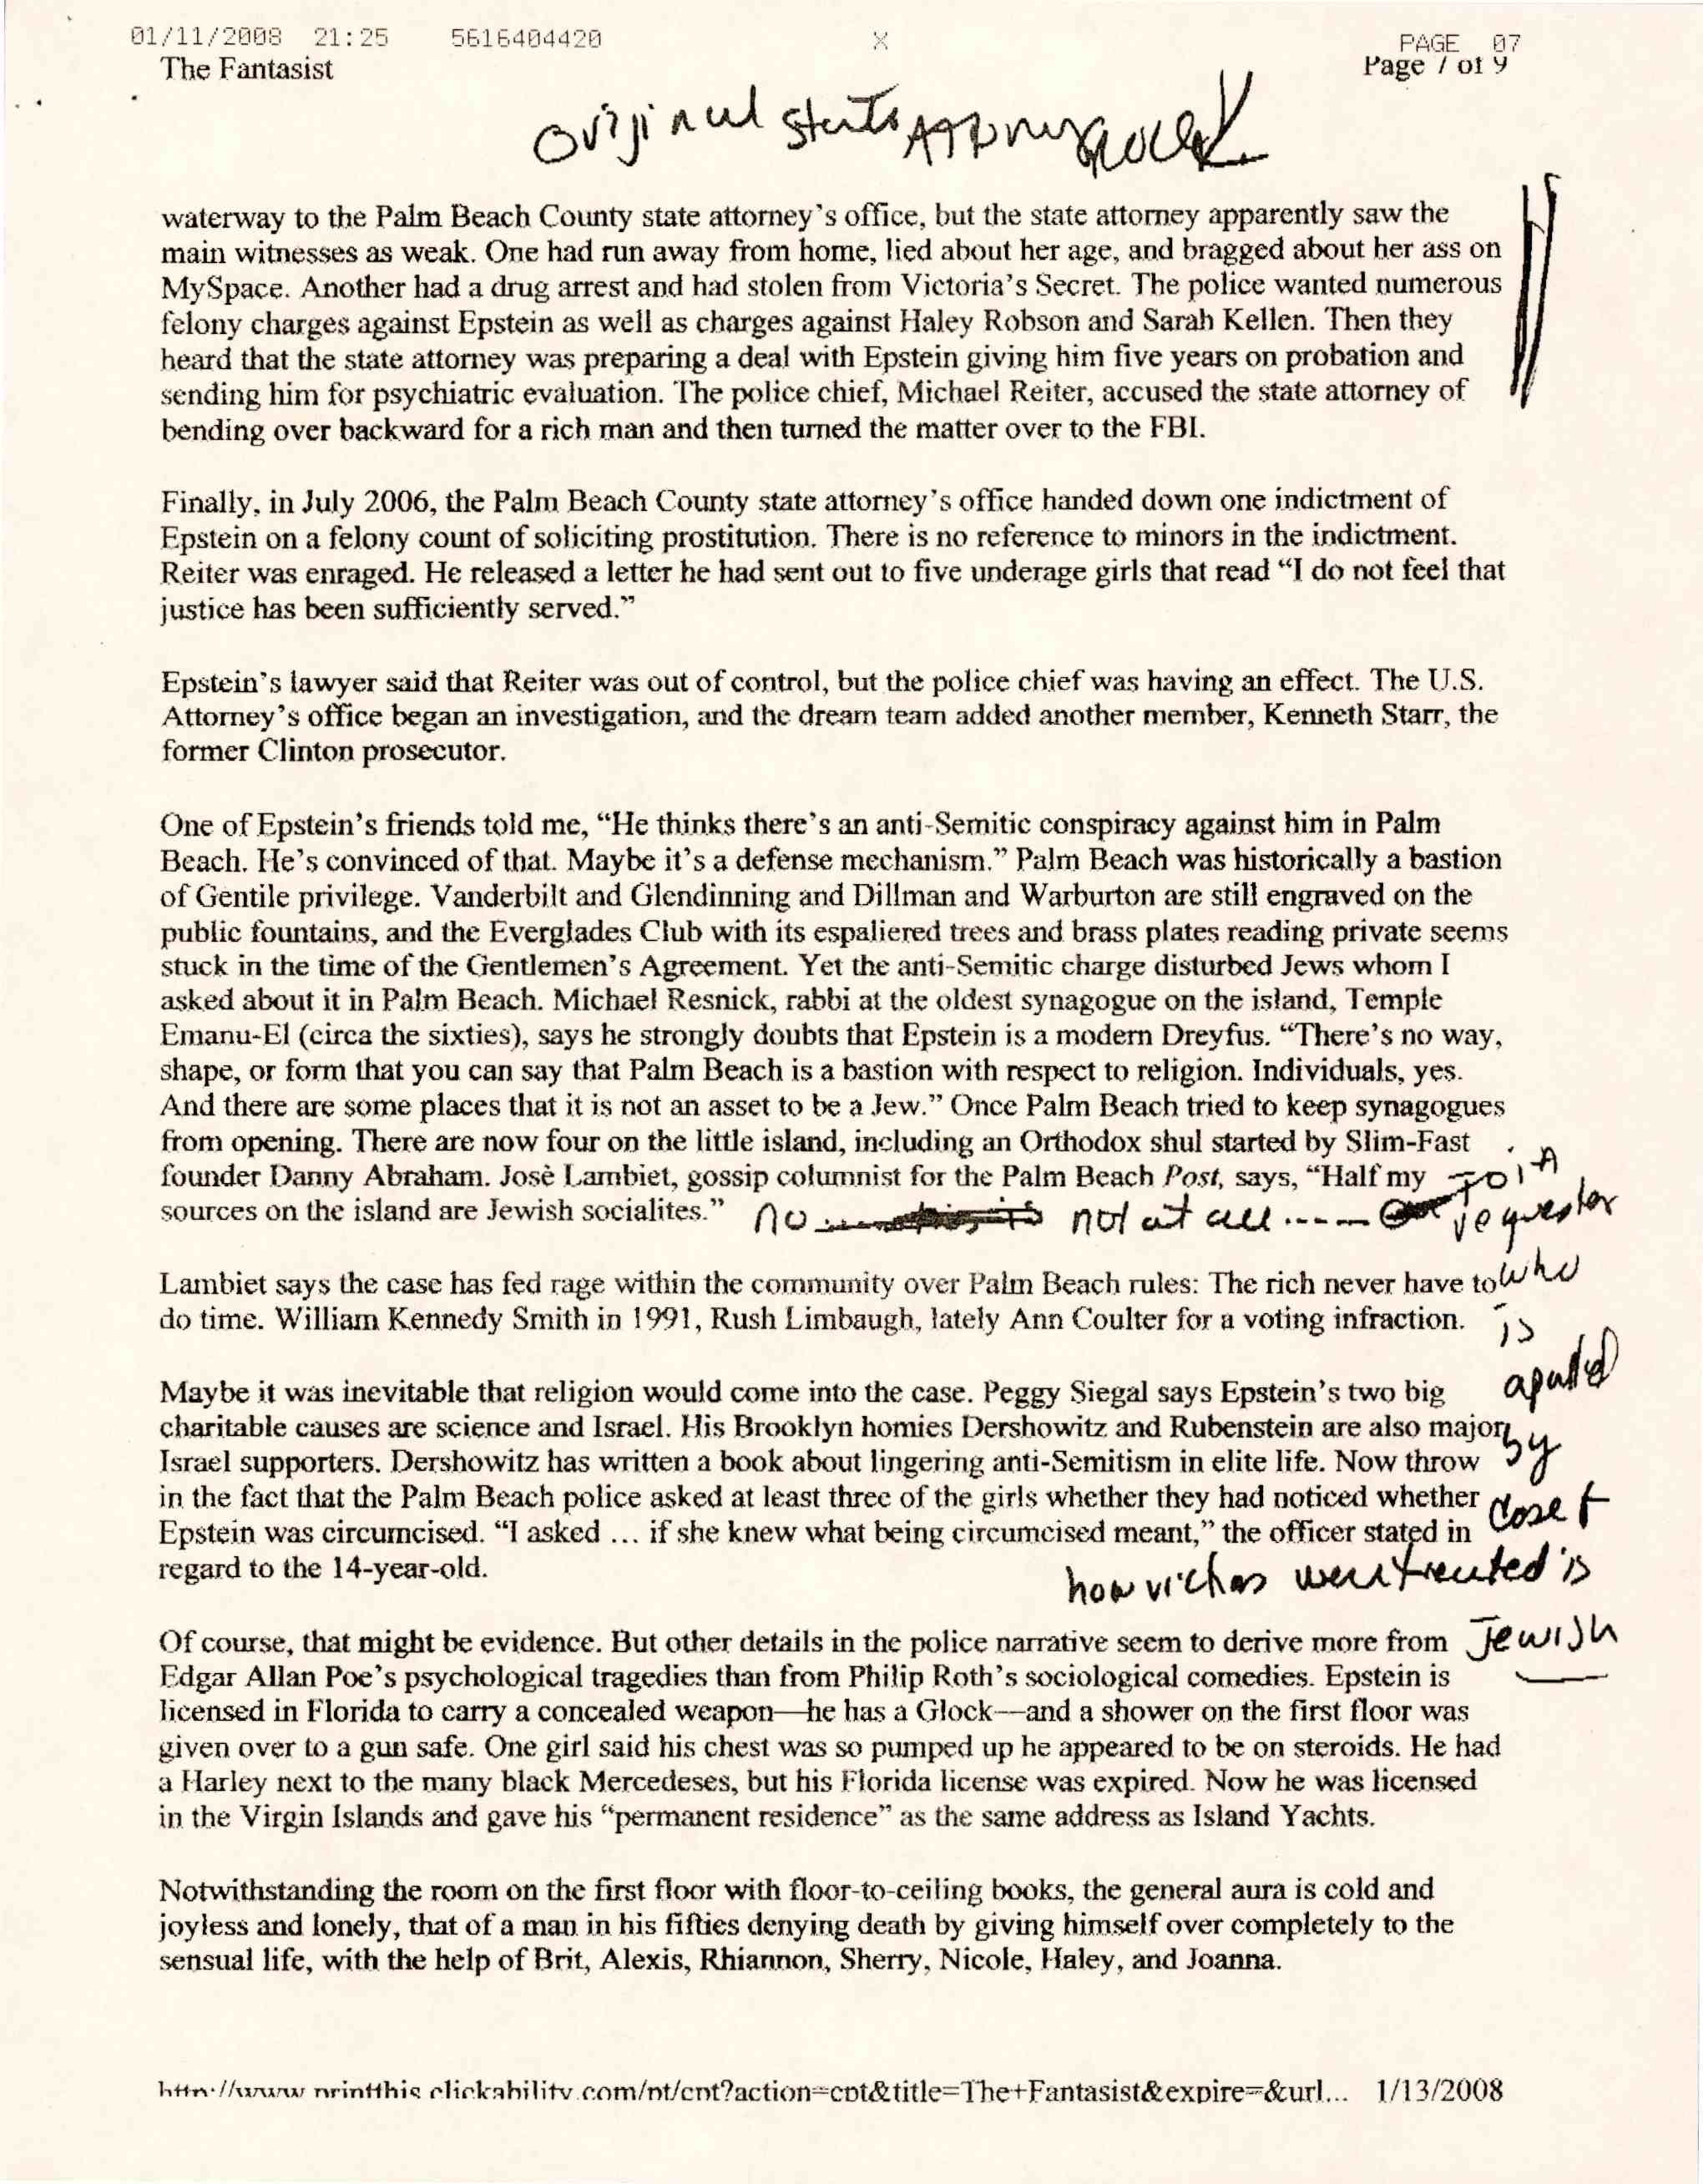 01/11/2008 21:25 5616404420 X PAGE 07
The Fantasist Page 7 of 9
original states
waterway to the Palm Beach County state attorney's office, but the state attorney apparently saw the
main witnesses as weak. One had run away from home, lied about her age, and bragged about her ass on
MySpace. Another had a drug arrest and had stolen from Victoria's Secret. The police wanted numerous
felony charges against Epstein as well as charges against Haley Robson and Sarah Kellen. Then they
heard that the state attorney was preparing a deal with Epstein giving him five years on probation and
sending him for psychiatric evaluation. The police chief, Michael Reiter, accused the state attorney of
bending over backward for a rich man and then turned the matter over to the FBI.
Finally, in July 2006, the Palm Beach County state attorney's office handed down one indictment of
Epstein on a felony count of soliciting prostitution. There is no reference to minors in the indictment.
Reiter was enraged. He released a letter he had sent out to five underage girls that read “I do not feel that
justice has been sufficiently served.”
Epstein's lawyer said that Reiter was out of control, but the police chief was having an effect. The U.S.
Attorney's office began an investigation, and the dream team added another member, Kenneth Starr, the
former Clinton prosecutor.
One of Epstein's friends told me, “He thinks there's an anti-Semitic conspiracy against him in Palm
Beach. He's convinced of that. Maybe it's a defense mechanism.” Palm Beach was historically a bastion
of Gentile privilege. Vanderbilt and Glendinning and Dillman and Warburton are still engraved on the
public fountains, and the Everglades Club with its espaliered trees and brass plates reading private seems
stuck in the time of the Gentlemen's Agreement. Yet the anti-Semitic charge disturbed Jews whom I
asked about it in Palm Beach. Michael Resnick, rabbi at the oldest synagogue on the island, Temple
Emanu-El (circa the sixties), says he strongly doubts that Epstein is a modern Dreyfus. “There's no way,
shape, or form that you can say that Palm Beach is a bastion with respect to religion. Individuals, yes.
And there are some places that it is not an asset to be a Jew.” Once Palm Beach tried to keep synagogues
from opening. There are now four on the little island, including an Orthodox shul started by Slim-Fast
founder Danny Abraham. Josè Lambiet, gossip columnist for the Palm Beach Post, says, “Half my FOIA
sources on the island are Jewish socialites.” no not at all ..... requester
Lambiet says the case has fed rage within the community over Palm Beach rules: The rich never have to who
do time. William Kennedy Smith in 1991, Rush Limbaugh, lately Ann Coulter for a voting infraction. is
Maybe it was inevitable that religion would come into the case. Peggy Siegal says Epstein's two big
charitable causes are science and Israel. His Brooklyn homies Dershowitz and Rubenstein are also major by
Israel supporters. Dershowitz has written a book about lingering anti-Semitism in elite life. Now throw
in the fact that the Palm Beach police asked at least three of the girls whether they had noticed whether
Epstein was circumcised. “I asked ... if she knew what being circumcised meant,” the officer stated in
regard to the 14-year-old. how were treated is
Of course, that might be evidence. But other details in the police narrative seem to derive more from Jewish
Edgar Allan Poe's psychological tragedies than from Philip Roth's sociological comedies. Epstein is
licensed in Florida to carry a concealed weapon—he has a Glock—and a shower on the first floor was
given over to a gun safe. One girl said his chest was so pumped up he appeared to be on steroids. He had
a Harley next to the many black Mercedeses, but his Florida license was expired. Now he was licensed
in the Virgin Islands and gave his “permanent residence” as the same address as Island Yachts.
Notwithstanding the room on the first floor with floor-to-ceiling books, the general aura is cold and
joyless and lonely, that of a man in his fifties denying death by giving himself over completely to the
sensual life, with the help of Brit, Alexis, Rhiannon, Sherry, Nicole, Haley, and Joanna.
http://www.printthis.clickability.com/pt/cpt?action=cpt&title=The+Fantasist&expire=&url... 1/13/2008